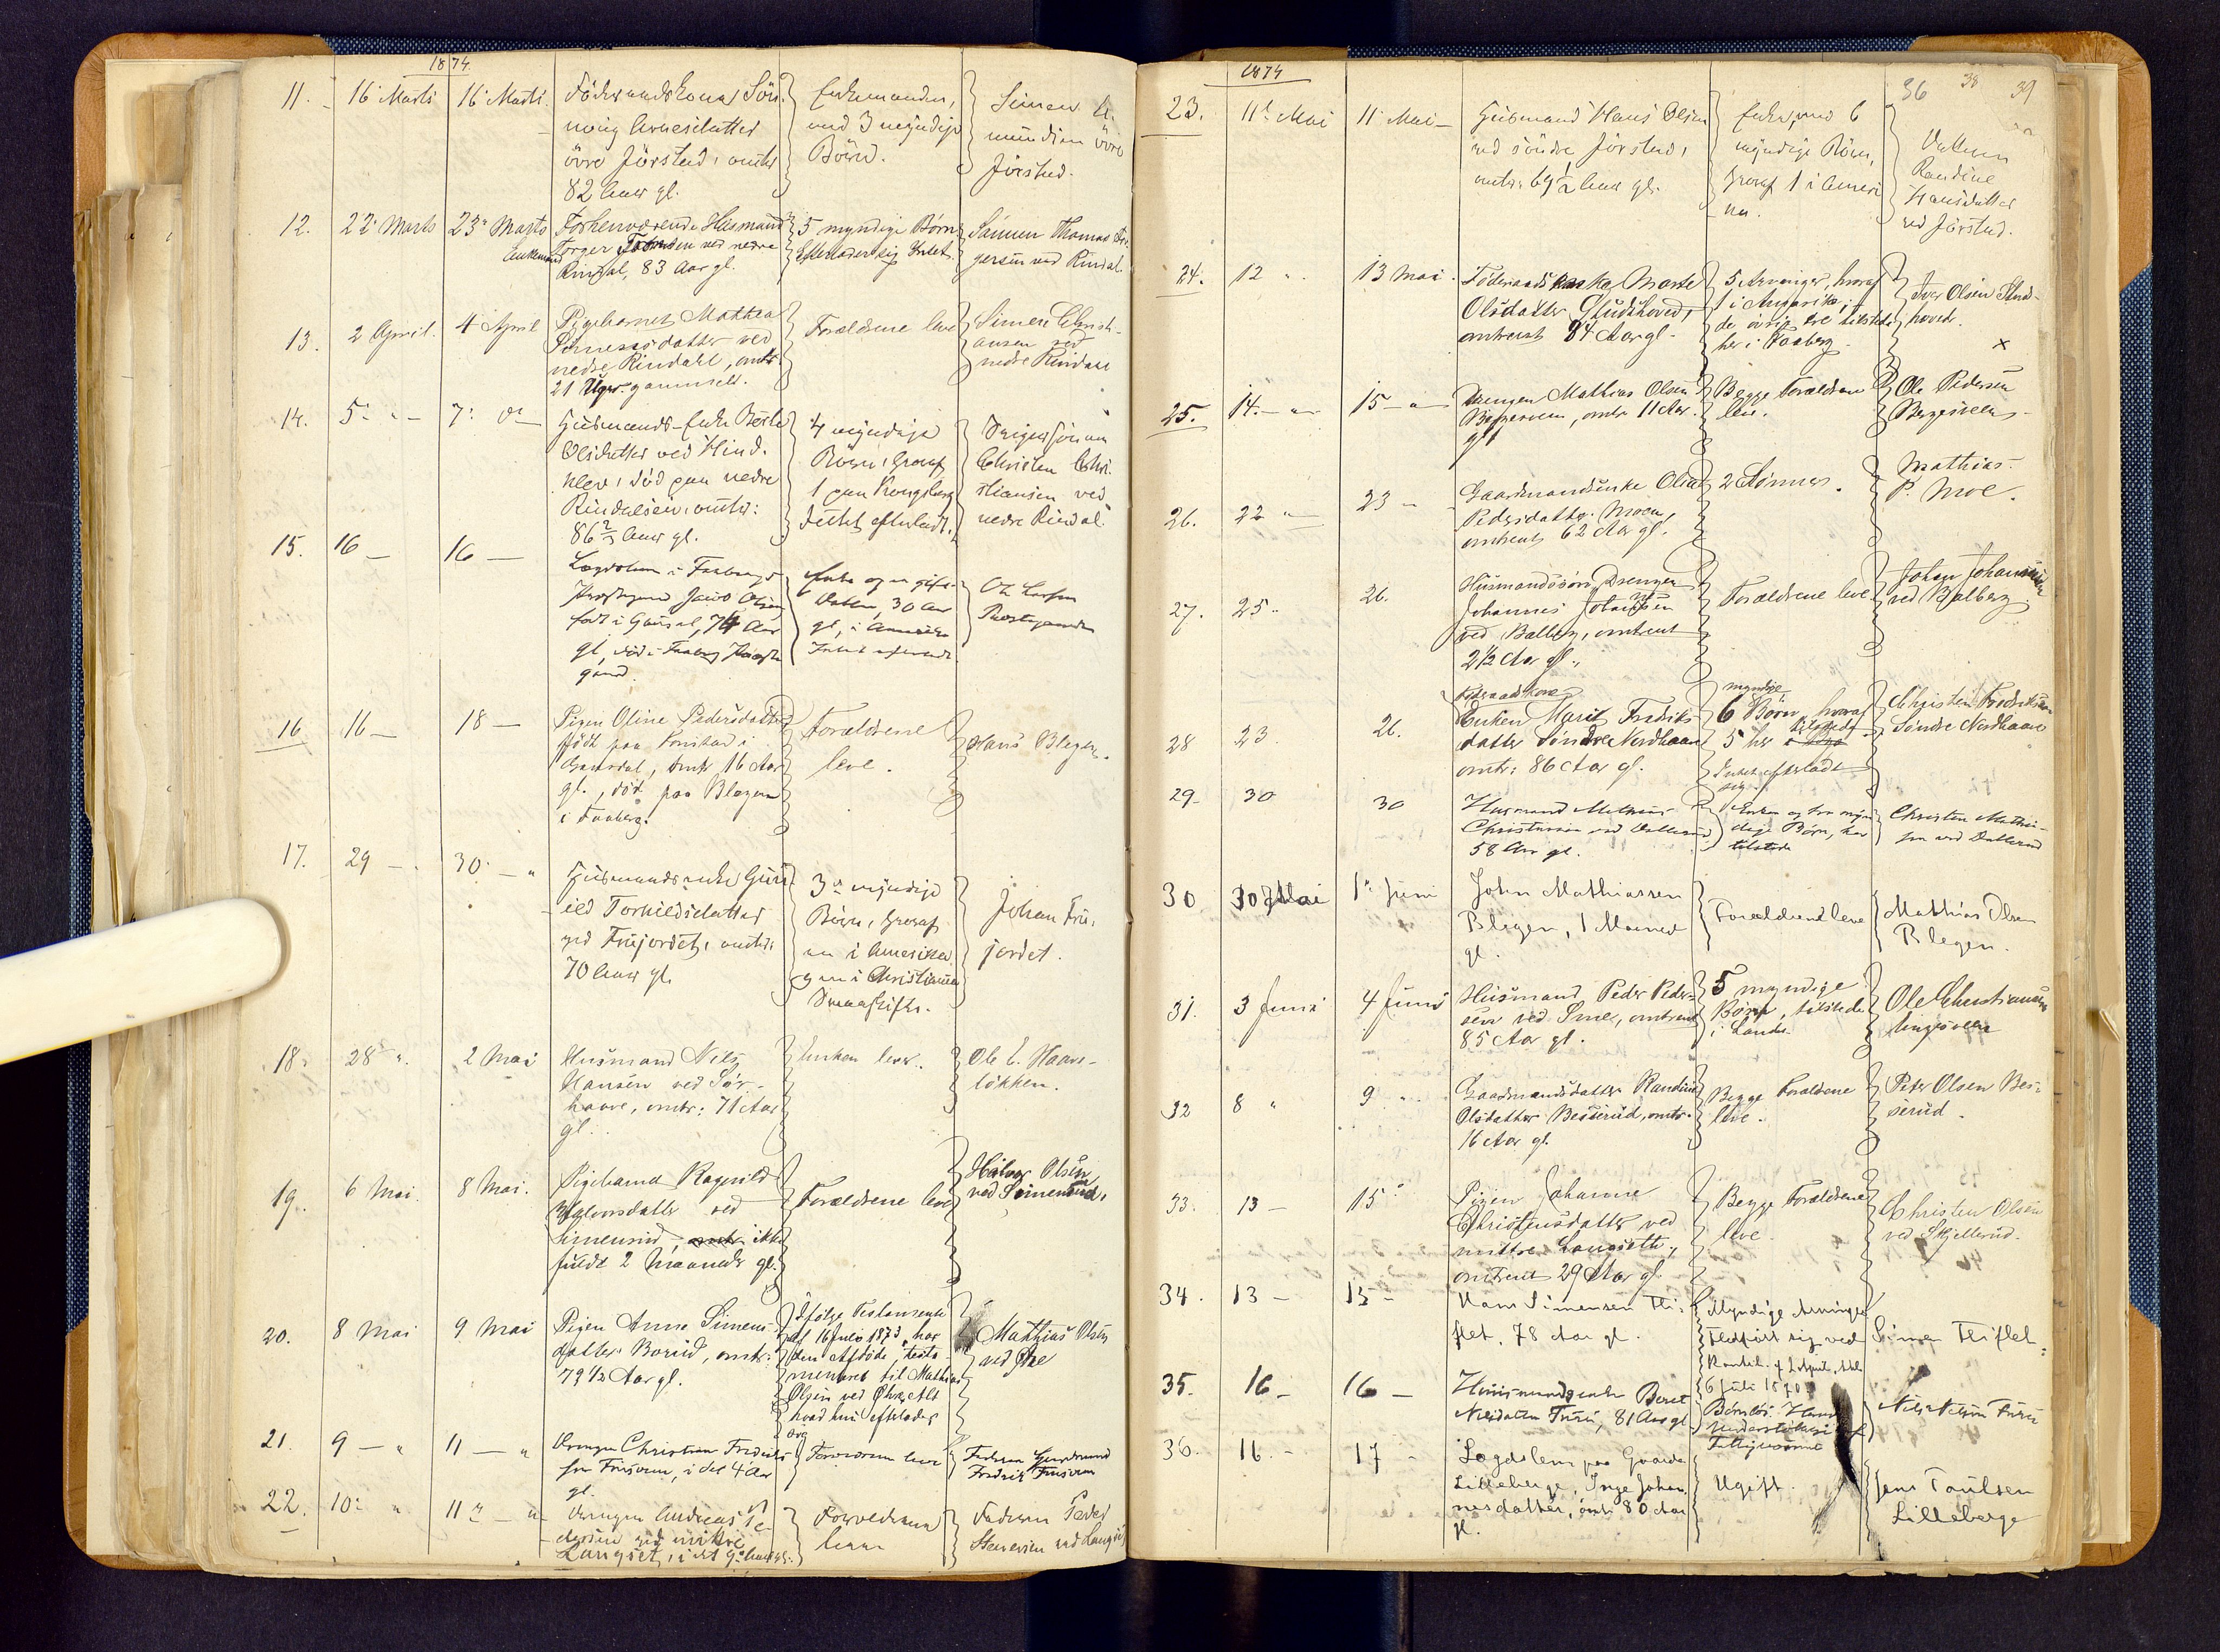 1874
11. 16 Marts 16 Marts. Föderaadskone Sön-
nøug Arnesdatter
övre Jörstad, omtr
82 Aar gl.
Enkemanden,
med 3 myndige
Börn.
Simen A-
mundsen övre
Jörstad.
12. 22 Marts 23 Marts Forhenværende Husmand
Enkemand Torger ved nedre
Rindal, 83 Aar gl.
5 myndige Börn
Efterlader sig Intet.
Sönnen Thomas Tor-
gersen ved Rindal
13. 2 April. 4 April Pigebarnet Mathea
Simensdatter ved
nedre Rindahl, omtr
21 Uger gammelt.
Forældrene leve
Simen Christi-
ansen ved
nedre Rindal
14. 5 - " - 7 - Husmands-Enke Berte
Olsdatter ved Hind-
klev, död paa nedre
Rindalseie, omtr:
86 2/3 Aar gl.
4 myndige
Börn, hvoraf
1 paa Kongsberg
Intet efterladt.
Svigersönnen
Christen Chri-
stiansen ved
nedre Rindal.
15. 16 - 16 - Lægdslem i Faabergs
Præstegjeld Jacob Olsen
født i Gausdal, 74 Aar
gl, död i Faaberg Præste
gaard.
Enke og en gift
Datter, 30 Aar
gl, i Amerika
Intet efterladt.
Ole Larsen
Præstegaarden
16 16 - 18 - Pigen Oline Pedersdatter
født paa Konstad i
Gausdal, omtr 16 Aar
gl., död paa Blegen
i Faaberg.
Forældrene
leve.
Hans Blegen.
17. 29 - 30 - " Husmandsenke Gun-
ild Torkildsdatter
ved Frujordet, omtr:
70 Aar gl.
3 myndige
Börn, hvoraf
en i Amerika
og en i Christiania
Johan Fru-
jordet.
18. 28 " 2 Mai Husmand Nils
Hansen ved Sör-
haave, omtr: 71 Aar
gl.
Enken lever.
Ole E. Haave-
løkken.
19. 6 Mai. 8 Mai. Pigebarnet Ragnild
Halvorsdatter ved
Simensrud, omtr ikke
fuldt 2 Maaneder gl.
Forældrene leve
Halvor Olsen
ved Simensrud.
20. 8 Mai 9 Mai Pigen Anne Simens-
datter Borud, omtr:
79 1/2 Aar gl.
Ifølge Testamente
af 16 Juli 1873, har
den Afdöde testa-
menteret til Mathias
Olsen ved Øhre Alt
hvad hun efterlader
sig
Mathias Olsen
ved Øhre
21. 9 - " 11 - " Drengen Christian Fredriks
sen Frusveen, i det 4 Aar
gl.
Forældrene leve
Faderen Gaardmand
Fredrik Frusveen
22. 10 " 11 - " Drengen Andreas Pe-
dersen ved midtre
Langset, i det 9 Aar gl.
Forældrene
leve
Faderen Peder
Stenersen ved Langset
1874
36 38 39
23. 11 Mai 11 Mai - Husmand Hans Olsen
ved söndre Jörstad,
omtr. 69 1/2 Aar gl.
Enke, med 6
myndige Börn,
hvoraf 1 i Ameri
ka.
Datteren
Randine
Hansdatter
ved Jörstad.
24. 12 " 13 Mai. Föderaadsenke Marte
Olsdatter Studshoved,
omtrent 84 Aar gl.
5 Arvinger, hvoraf
1 i Amerika,
de övrige ere tilstede
her i Faaberg.
Iver Olsen Studs-
hoved.
x
25. 14 - " - 15 - " Drengen Mathias Olsen
Bergesveen, omtr 11 Aar
gl
Begge Forældrene
leve.
Ole Pedersen
Bergesveen
26. 22 " 23 - Gaardmandsenke Olea
Pedersdatter Moen,
omtrent 62 Aar gl.
2 Sönner.
Mathias
P. Moe.
27. 25 " 26. Husmandssön, Drengen
Johannes Johansen
ved Balberg, omtrent
2 1/2 Aar gl.,
Forældrene leve
Johan Johannessen
ved Balberg.
28 23. 26. Föderaadskone
Enken Marit Fredriks
datter Söndre Nordhaave
omtr: 86 Aar gl.
myndige
6 Börn, hvoraf
5 her tilstede
Intet efterladt
sig.
Christen Fredriksen
Søndre Nordhaave
29. 30 30 Husmand Mathias
Christensen ved Dallerud
58 Aar gl.
Enken og tre myn
dige Börn, her
tilstede
Christen Mathi-
sen ved Dallerud
30 30 Mai 1 Juni John Mathiassen
Blegen, 1 Maaned
gl.
Forældrene leve
Mathias Olsen
Blegen.
31. 3 Juni 4 Juni Husmand Peder Peder-
sen ved Smed, omtrent
85 Aar gl.
5 myndige
Börn, tilstede
i Landet.
Ole Christiansen
32 8 " 9 " Gaardmandsdatter Randine
Olsdatter Besserud, omtr.
16 Aar gl.
Begge Forældrene
leve.
Peter Olsen Bes-
serud.
33. 13 - 15 Pigen Johanne
Christensdatter ved
midtre Langseth,
omtrent 29 Aar gl.
Begge Forældrene
leve.
Christen Olsen
ved Skjellerud.
34. 13 - 15 - Hans Simensen Fli-
flet, 78 Aar gl.
Myndige Arvinger
Simen Fliflet.
6 Juli 1870
35. 16 - 16 - Husmandsenke Beret
Nilsdatter Furu, 81 Aar gl
Börnlös. Havde
Understöttelse af
Fattigvæsenet
Nils Nilsen Furu
36. 16 - 17 - Lægdslem paa Gaarden
Lilleberge, Inge Johan-
nesdatter, omtr 80 Aar
gl.
Ugift.
Jens Poulsen
Lilleberge